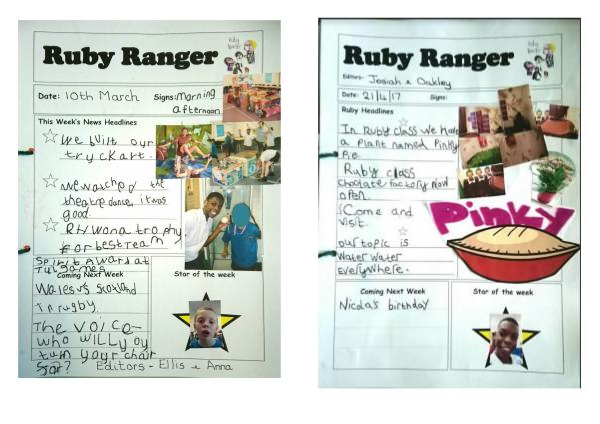 Ruby Ranger
Date: 10th March Signs: morning
afternoon
This Week's News Headlines
We built our
try ckart.
we watched the
theatre dance, it was
good.
RH won a trophy
for best team
Spirit Award at
Coming Next Week
Wales vs Scotland
in rugby
The voice-
who will
turn your chair
for?
Star of the week
Editors - Ellis & Anna
Ruby Ranger
Editors: Josiah & Oakley
Date: 21/4/17 Signs:
Ruby Headlines
In Ruby class we have
a plant named Pinky
Pie.
Ruby class
choclate factory now
open.
Come and
visit.
our topic is
Water Water
everywhere.
Pinky
Coming Next Week
Nicola's birthday
Star of the week